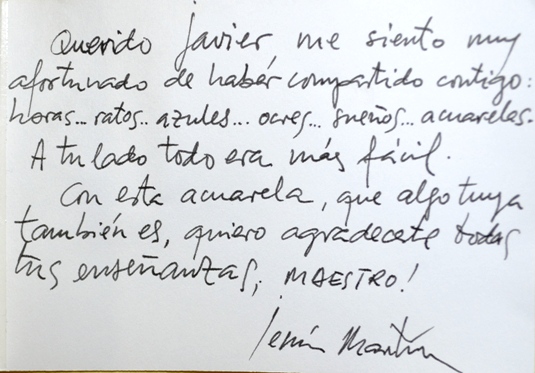 Querido javier, me siento muy
afortunado de habér compartido contigo:
horas... ratos.. azules... ocres... sueños... acuarelas.
A tu lado todo era más fácil.
Con esta acuarela, que algo tuya
también es, quiero agradecete todas
tus enseñanzas, MAESTRO!